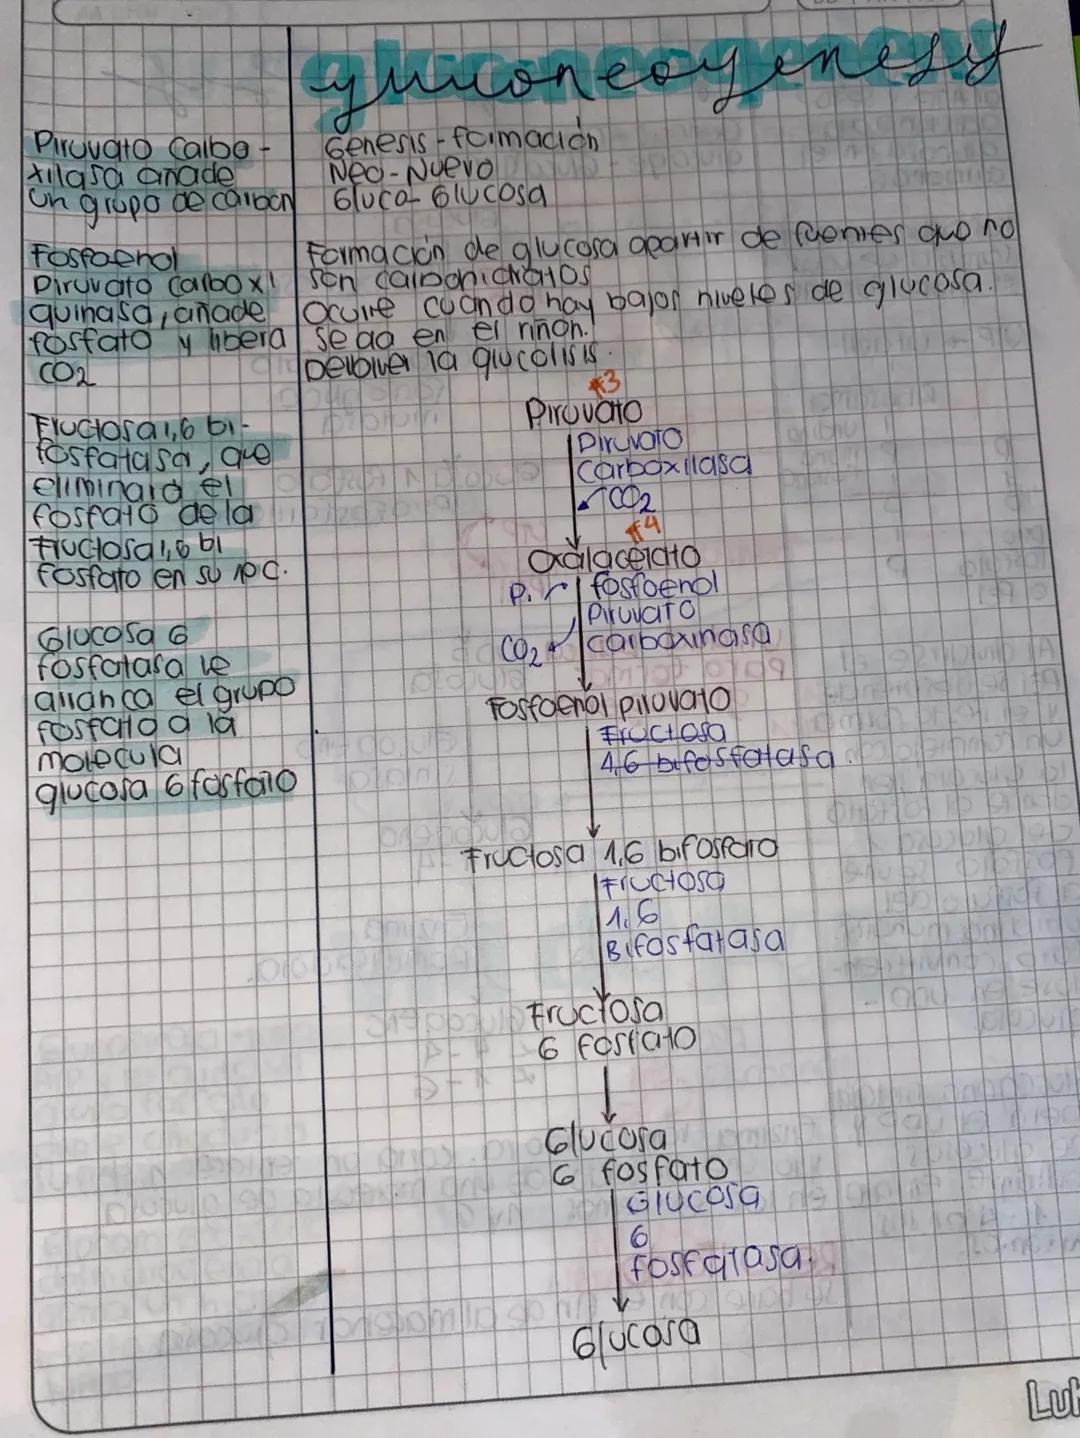 gluconeogenesis
Piruvato Carbo-
xilasa añade
un grupo de carbon
Fosfoenol
Piruvato carboxi
quinasa, añade
fosfato y libera
CO2
Fructosa 1,6 bi-
fosfatasa, que
eliminara el
fosfato de la
Fructosa 1,6 bi
fosfato en su
Glucosa 6
fosfatasa le
arranca el grupo
fosfato a la
molecula
glucosa 6 fosfato
Genesis - formación
Neo - Nuevo
Gluco - Glucosa
Formación de glucosa apartir de fuentes que no
son carbohidratos
Ocurre cuando hay bajos niveles de glucosa.
Se da en el riñon.
Devolver la glucolisis.
#3
Piruvato
Piruvato
Carboxilasa
CO2
#4
Oxalacetato
P. fosfoenol
Piruvato
CO2 carboxinasa
Fosfoenol piruvato
Fructosa
1,6 bifosfatasa.
Fructosa 1,6 bifosfato
Fructosa
1,6
Bifosfatasa
Fructosa
6 fosfato
Glucosa
6 fosfato
Glucosa
6
fosfatasa.
Glucosa